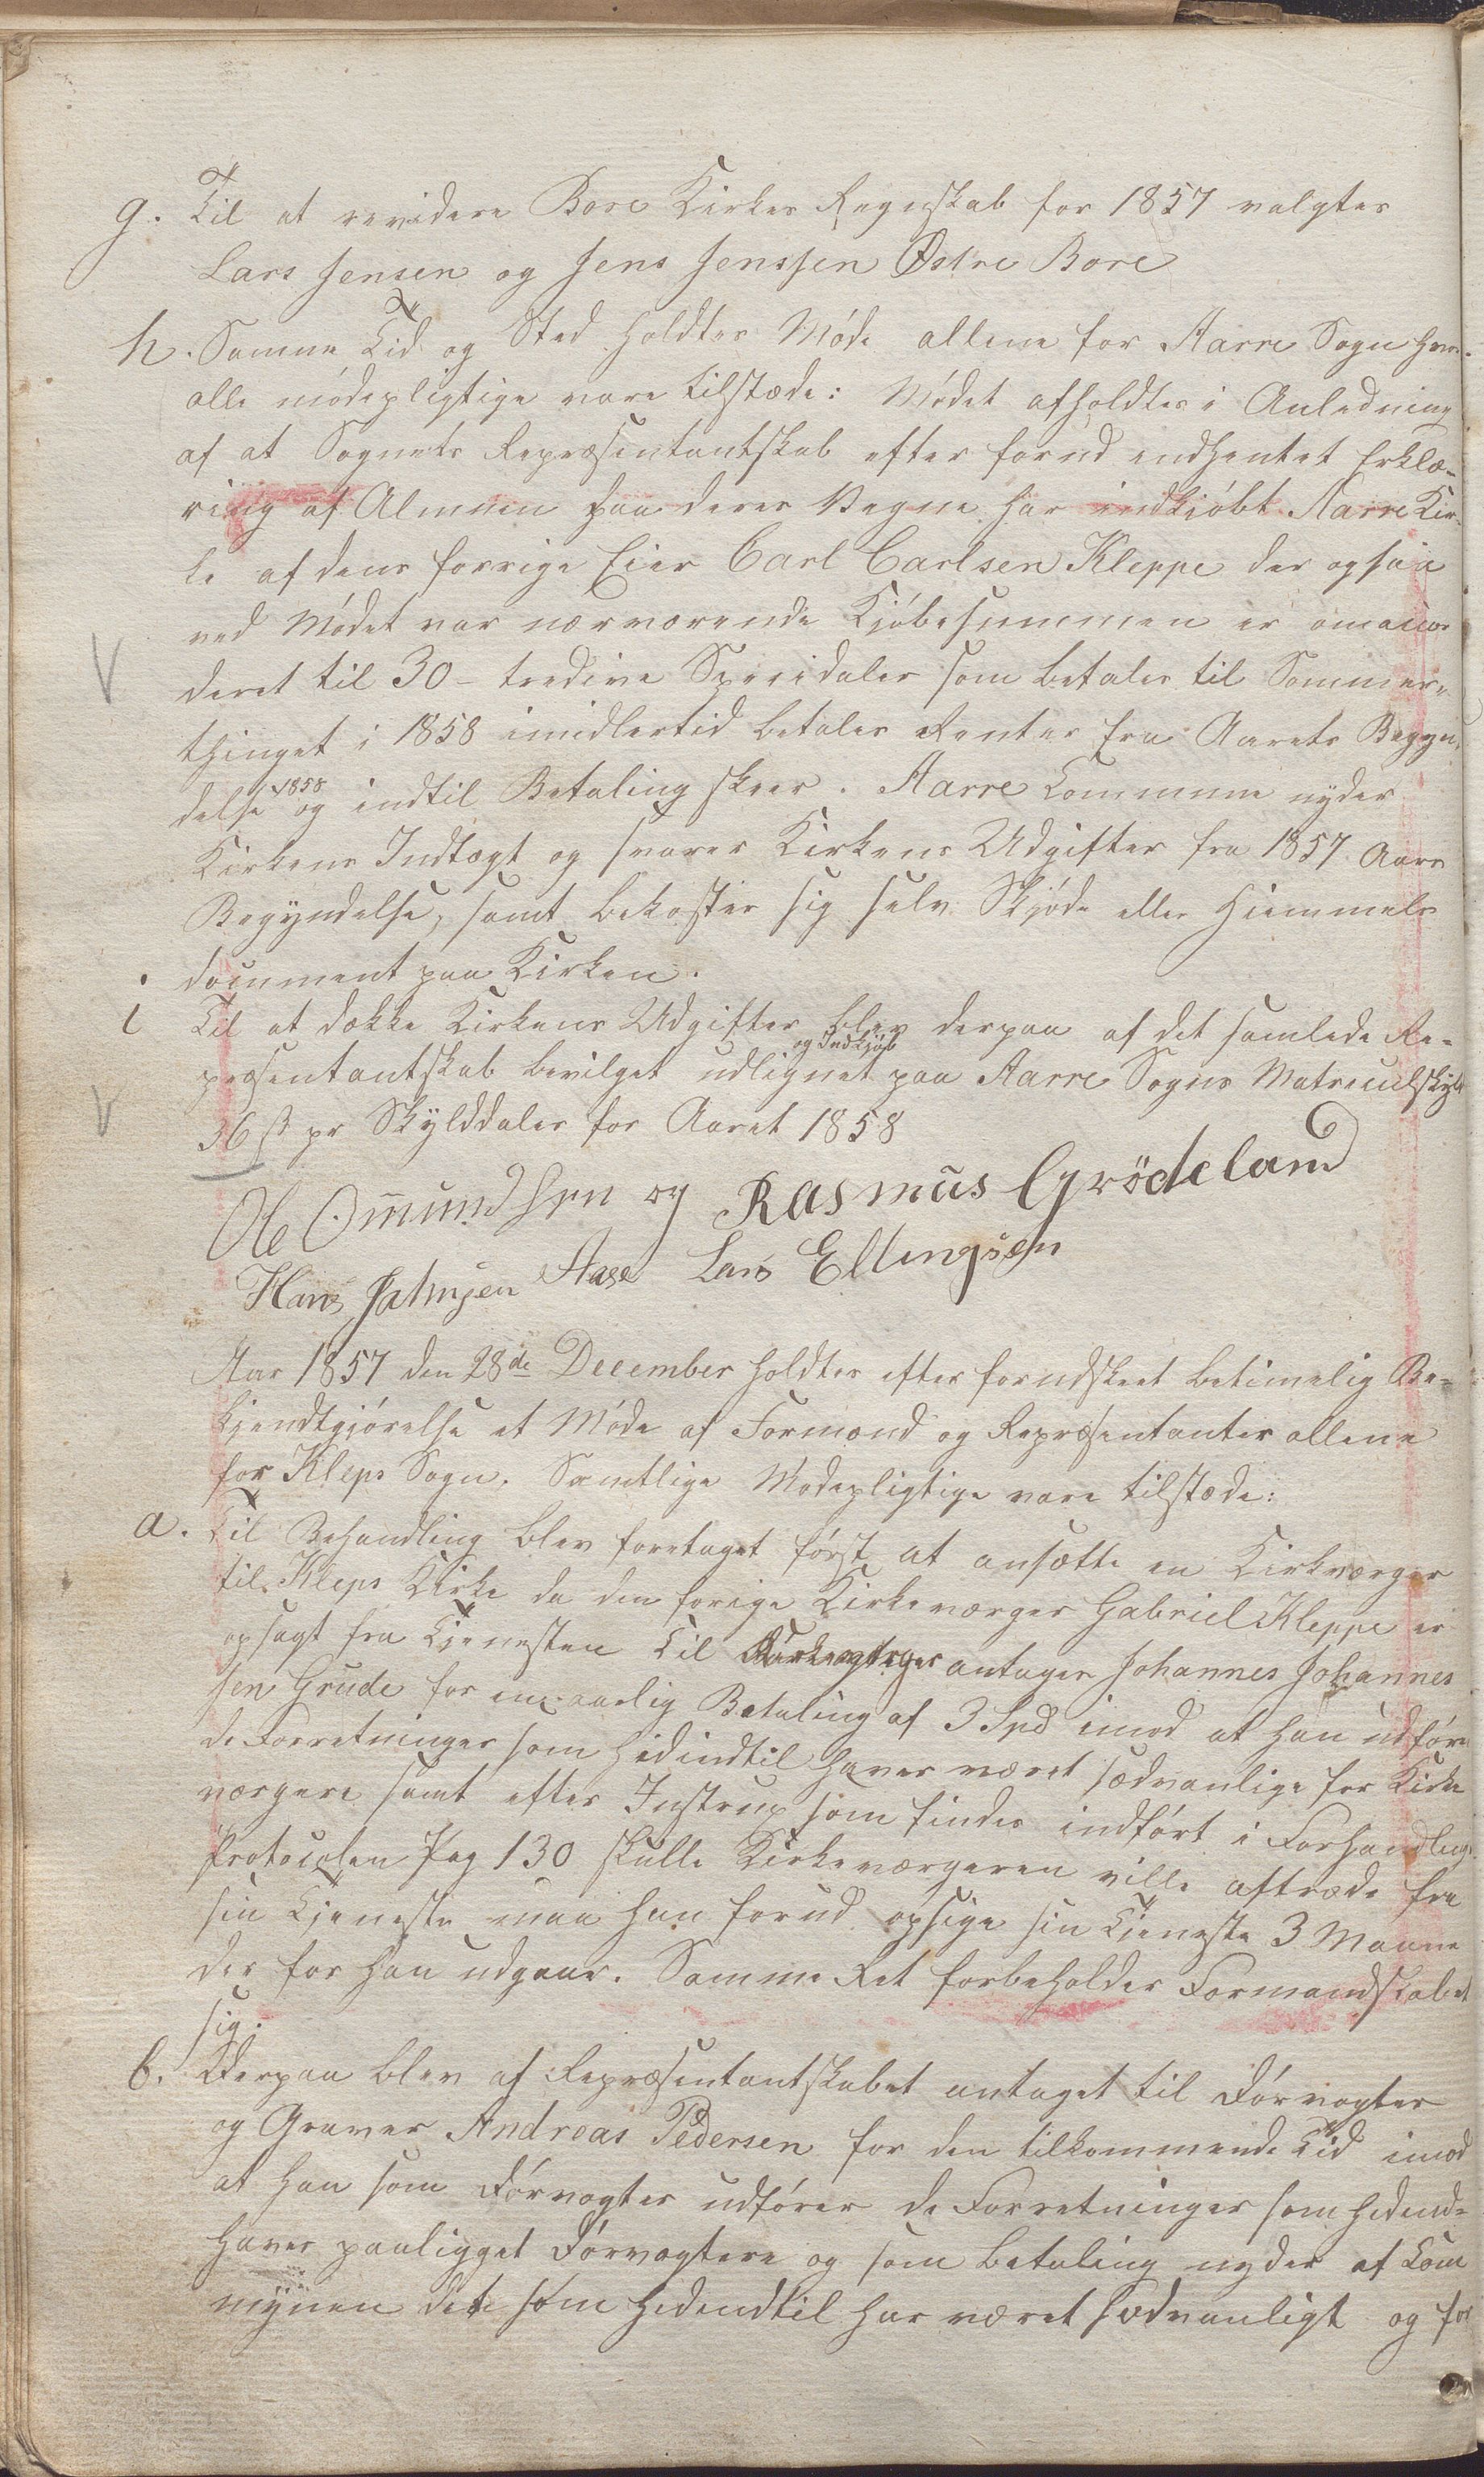 g. Til at revidere Bore Kirkes Regnskab for 1857 valgtes
Lars Jensen og Jens Jenssen Østre Bore
h. Samme Tid og Sted holdtes Møde allene for Aarre Sogn hvor
alle mødepligtige vare tilstæde: Mødet afholdtes i Anledning
af at Sognets Repræsentantskab efter forud indhentet Erklæ-
ring af Almuen paa deres Vegne har indkiøbt Aarre Kir-
ke af dens forrige Eier Carl Carlsen Kleppe der ogsaa
ved Mødet var nærværende Kjøbesummen er omaccor
deret til 30 - tredive Speciedaler som betales til Sommer-
thinget i 1858 imidlertid betales Renter fra Aarets Begyn-
delse 1858 og indtil Betaling skeer. Aarre Commune nyder
Kirkens Indtægt og svarer Kirkens Udgifter fra 1857 Aars
Begyndelse, samt bekoster sig selv Skjøde eller Hiemmels
document paa Kirken.
i Til at dække Kirkens Udgifter og Indkjøb blev derpaa af det samlede Re-
præsentantskab bevilget udlignet paa Aarre Sogns Matriculskyld
36 ß pr Skylddaler for Aaret 1858
Ole Omundsen og Rasmus Grödeland
Hans Aase Lars Ellingsen
Aar 1857 den 28de December holdtes efter forudskeet betimelig Be-
kjendtgjørelse et Møde af Formænd og Repræsentanter allene
for Kleps Sogn. Samtlige Mødepligtige vare tilstæde:
a. Til Behandling blev foretaget først at ansætte en Kirkværger
til Kleps Kirke da den forige Kirkeværger Gabriel Kleppe er
opsagt fra Tjenesten Til Kirkeværger antages Johannes Johannes
sen Grude for en aarlig Betaling af 3 Spd imod at han udføre
de Forretninger som hidindtil haver været sædvanlige for Kirke
værgere samt efter Instrux som findes indført i Forhandlings
Protocolen Pag 130 skulle Kirkeværgeren ville aftræde fra
sin Tjeneste maa han forud opsige sin Tjeneste 3 Maane
der for han udgaar. Samme Ret forbeholder Formandskabet
sig.
b. Derpaa blev af Repræsentantskabet antaget til Dørvogter
og Graver Andreas Pedersen for den tilkommende Tid imod
at han som Dørvogter udfører de Forretninger som hidind-
haver paaligget Dørvogtere og som Betaling nyder af Com
mynen det som hidendtil har været sædvanligt og for